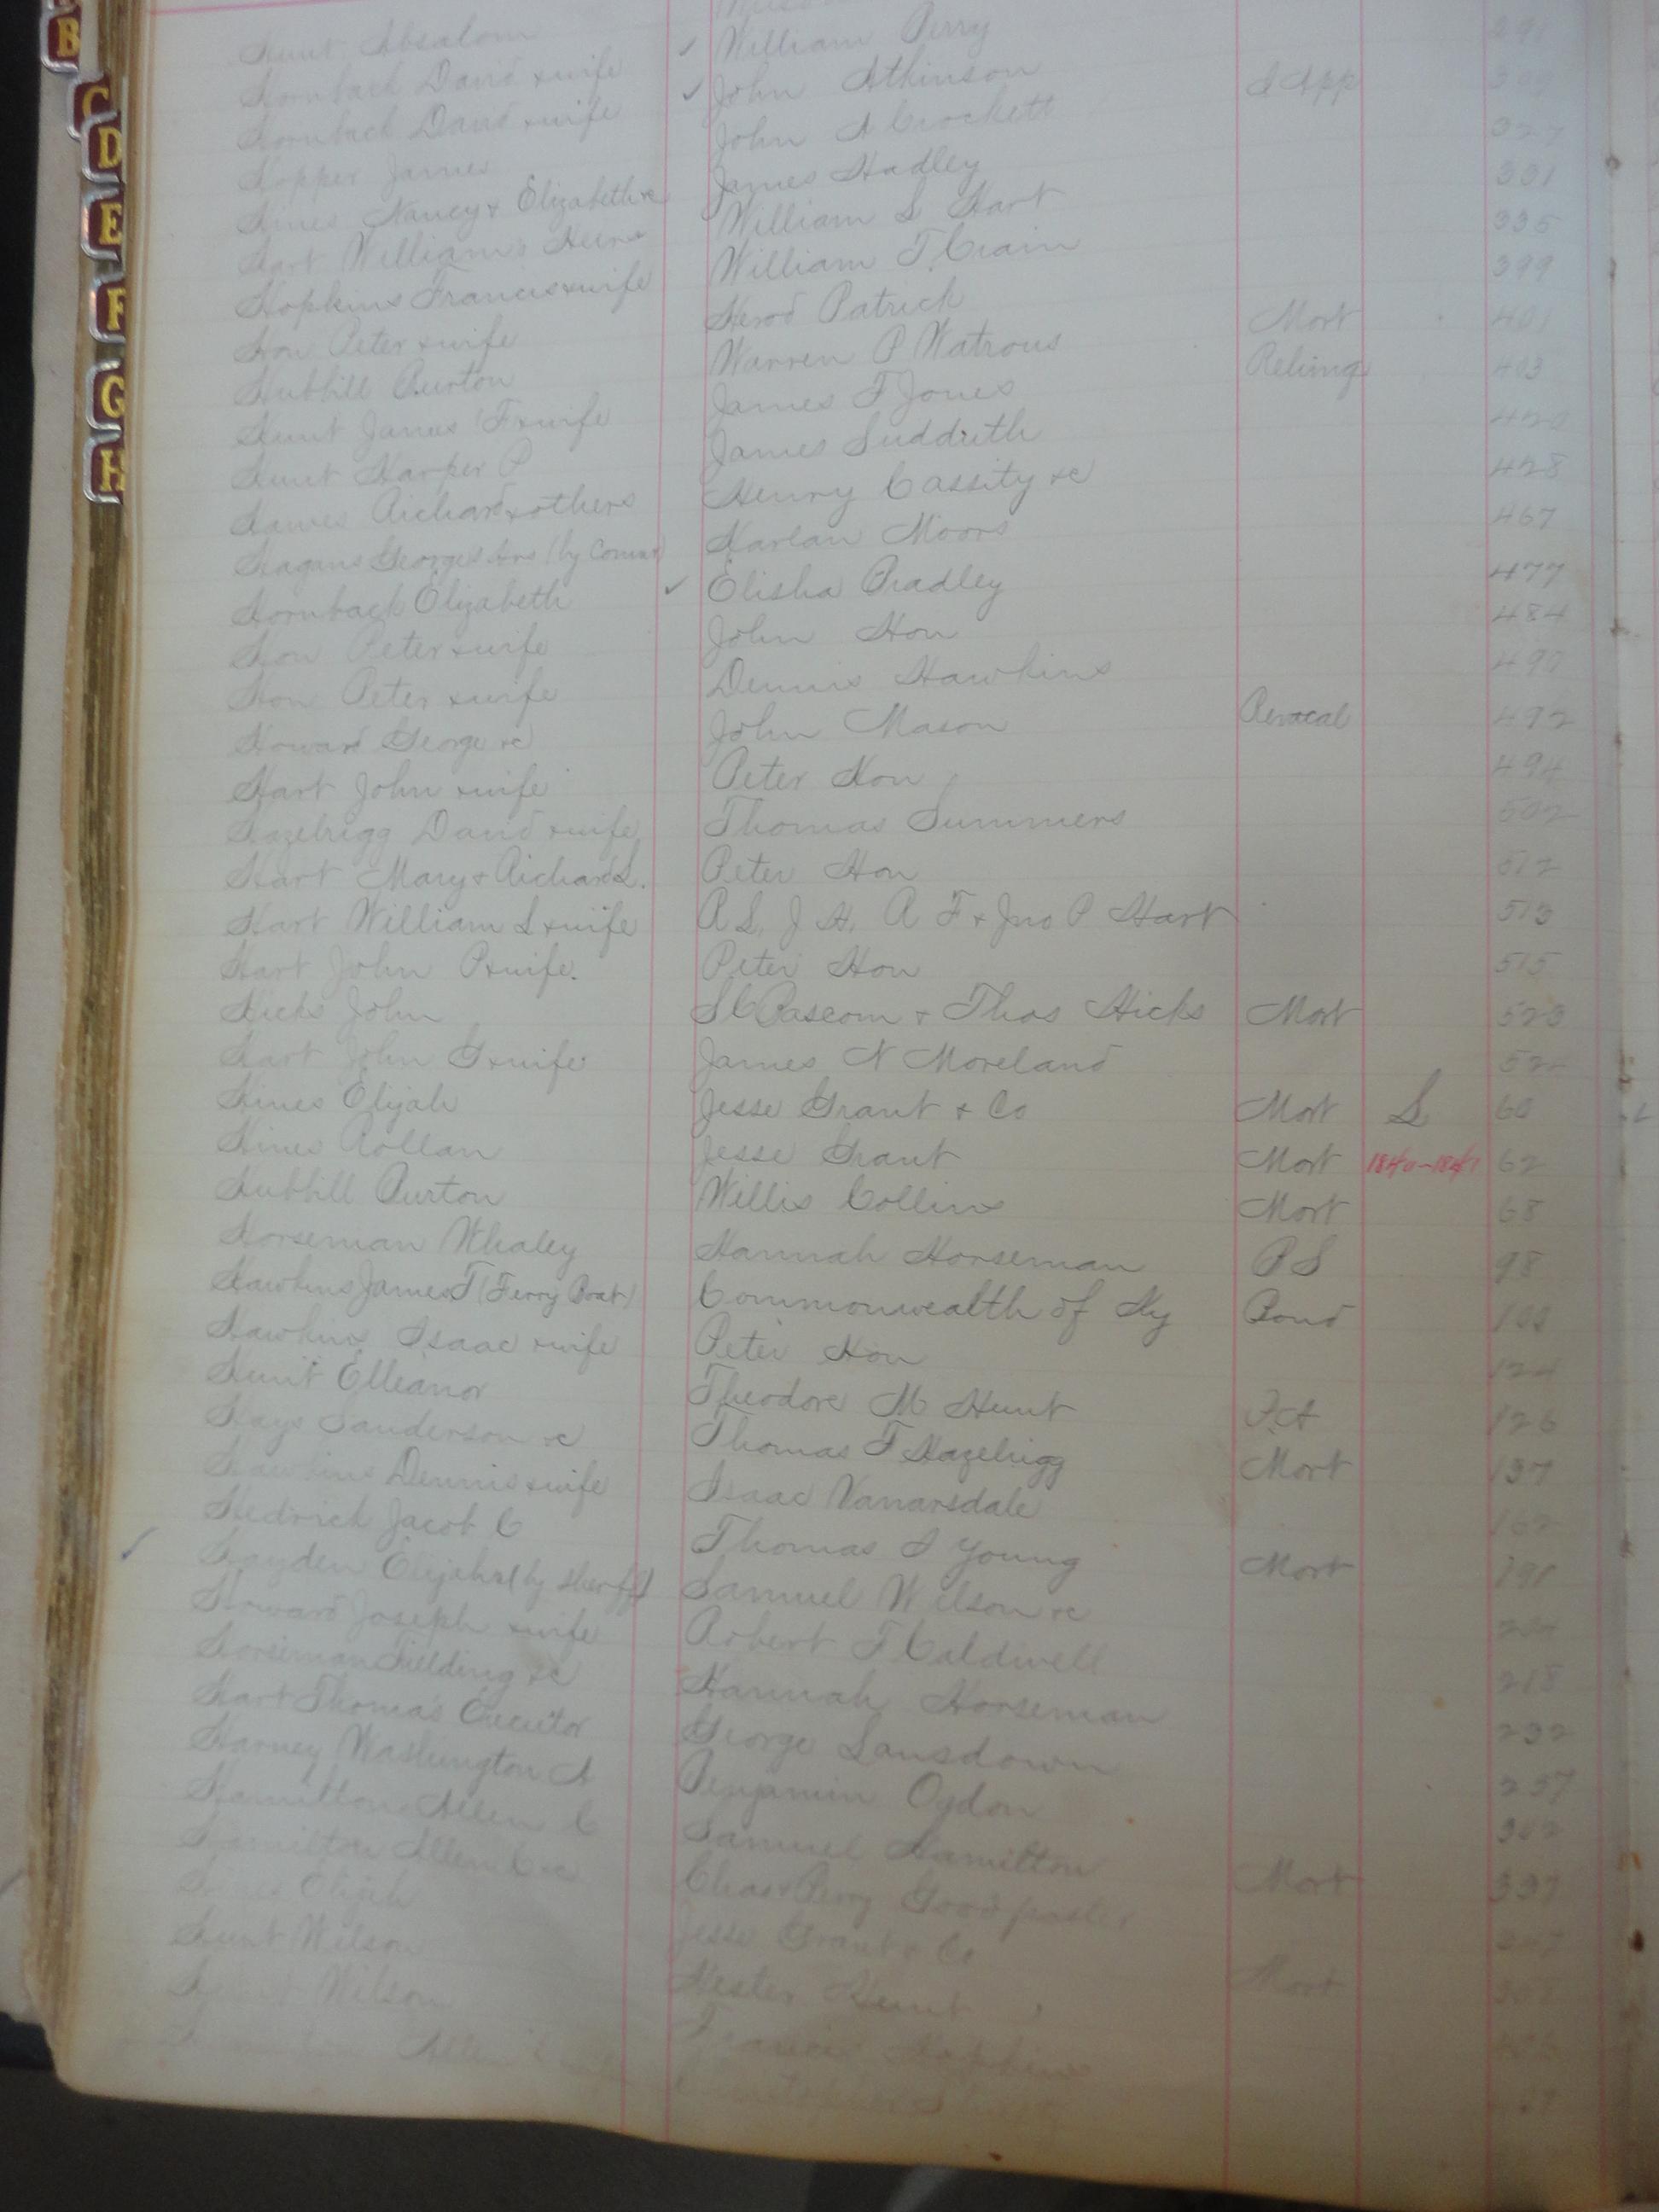 B
C
D
E
F
G
H
Hunt Absalom ✓ William Perry 291
Hornback David & wife ✓ John Atkinson
Hornback David & wife John A Crockett 327
Hopper James James Hadley 331
Hines Nancy & Elizabeth &c William S Hart 335
Hart William's Heirs William T Crain 399
Hopkins Francis & wife Herod Patrick Mort 401
Hon Peter & wife Warren P Watrous Relinq 403
Hubbill Burton James F Jones 420
Hunt James F & wife James Suddith 428
Hunt Harper P Henry Cassity &c 467
Hawes Richard & others Harlan Moors 477
Hagans George's hrs (by Comr) ✓ Elisha Bradley 484
Hornback Elizabeth John Hon 490
Hon Peter & wife Dennis Hawkins
Hon Peter & wife John Mason 492
Howard George &c Peter Hon 494
Hart John & wife Thomas Summers 502
Hazelrigg David & wife Peter Hon 512
Hart Mary & Richard S.
Hart William S & wife R S, J H, R F & Jno P Hart 513
Hart John P & wife. Peter Hon 515
Hicks John S C Bascom & Thos Hicks Mort 523
Hart John G & wife James N Moreland
Hines Elijah Jesse Grant & Co Mort S 60
Hines Rollan Jesse Grant Mort 1840-1841 62
Hubbill Burton Willis Collins Mort 68
Horseman Whaley Hannah Horseman B S 98
Hawkins James T (Ferry Boat) Commonwealth of Ky Bond
Hawkins Isaac & wife Peter Hon
Hunt Elleanor Theodore M Hunt 126
Hays Sanderson &c Thomas F Hazelrigg Mort 137
Hawkins Dennis & wife Isaac Vanarsdale
Hedrick Jacob C Thomas I Young Mort
Hayden Elijah (by Sheriff) Samuel Wilson &c
Howard Joseph & wife Robert T Caldwell 218
Horseman Fielding &c Hannah Horseman 232
Hart Thomas Executor George Lansdown 237
Harney Washington A Benjamin Ogdon
Hamilton Allen C Samuel Hamilton Mort 337
Hamilton Allen C &c Chas & Perry Goodpaster
Hines Elijah Jesse Grant & Co Mort
Hunt Wilson Hester Hunt
Wilson Francis Hopkins
Allen